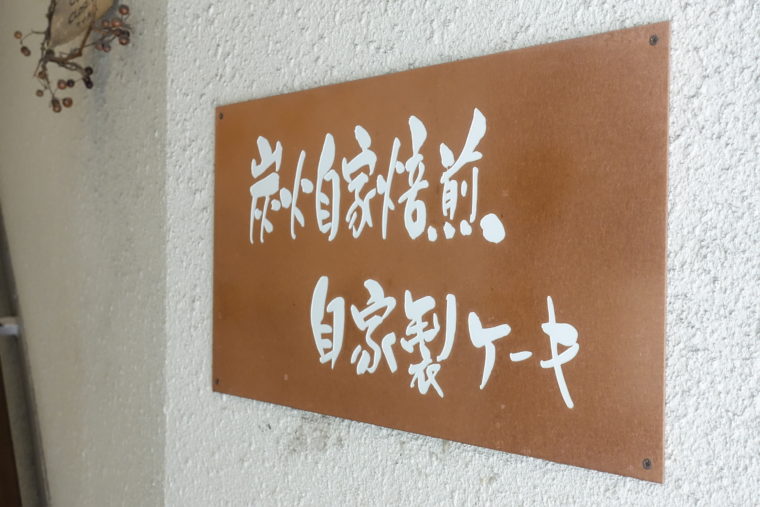 炭火自家焙煎
自家製ケーキ